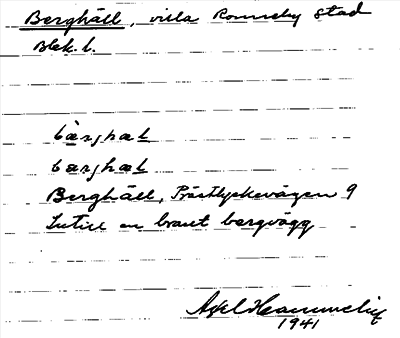 Berghäll, villa Ronneby stad
Blek. l.
bærjhæl
bærjhæl
Berghäll, Prästlyckevägen 9
Intill en brant bergvägg
Axel
1941